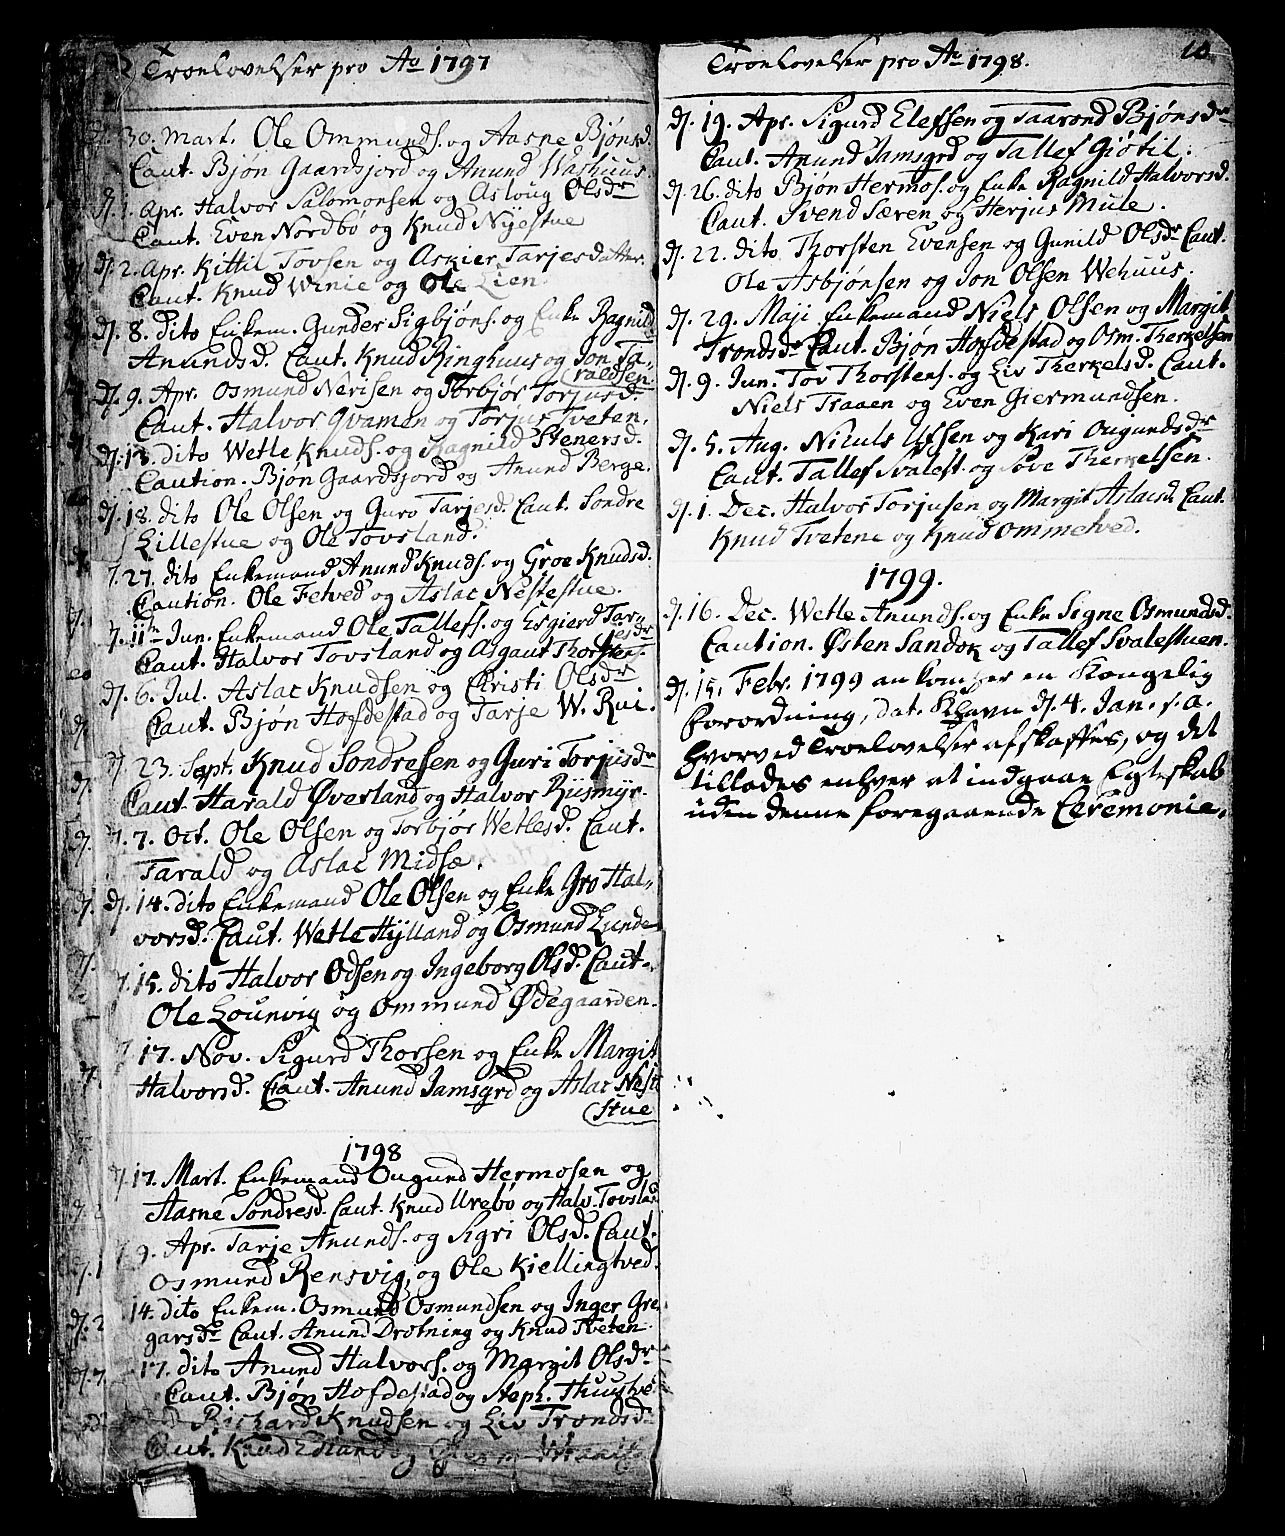 Troelovelser pro Ao 1797
30. Mart. Ole Ommunds. og Aasne Bjønsd.
Caut. Bjøn Gaardsjord og Anund Washuus
dj. 1. Apr. Halvor Salomonsen og Asloug Olsdr
Caut. Even Nordbø og Knud Nyestue
dj. 2. Apr. Kittil Tovsen og Askier Tarjesdatter
Caut. Knud Winie og Ole Lien.
dj. 8. dito Enkem. Gunder Sigbjøns. og Enke Ragnild
Anundsd. Caut. Knud Ringhuus og Jon Ta-
raldsen
dj. 9. Apr. Osmund Nerisen og Torbjør Torjusd.
Caut. Halvor Qvamen og Torjus Tveten.
dj. 13. dito Wetle Knuds. og Ragnild Stenersd.
Caution. Bjøn Gaardsjord og Anund Berge.
dj. 18. dito Ole Olsen og Guro Tarjesd. Caut. Sondre
Lillestue og Ole Tovsland.
7. 27. dito Enkemand Anund Knuds. og Groe Knudsd.
Caution. Ole Fetved og Aslac Nestestue.
7. 11te Jun. Enkemand Ole Tallefs. og Esgierd Tarj
esdr
Caut. Halvor Tovsland og Asgaut Thorsten.
dj. 6. Jul. Aslac Knudsen og Christi Olsdr
Caut. Bjøn Hofdestad og Tarje W. Rui.
dj. 23. Sept. Knud Sondresen og Guri Torjusdr
Caut. Harald Øverland og Halvor Rijsmyr.
7. 7. Oct. Ole Olsen og Torbjør Wetlesd. Caut.
Tarald og Aslac Midsæ.
dj. 14. dito Enkemand Ole Olsen og Enke Gro Hal-
vorsd. Caut. Wetle Hylland og Osmund Lunde
7. 15. dito Halvor Odsen og Ingeborg Olsd. Caut.
Ole Lounvig og Ommund Ødegaarden.
7. 17. Nov. Sigurd Thorsen og Enke Margit
Halvorsd. Caut. Anund Jamsgrd og Aslac Neste
stue
1798
dj. 17. Mart. Enkemand Ougund Hermosen og
Aasne Sondresd. Caut. Knud Urebø og Halv. Tovsland
9. Apr. Tarje Anunds. og Sigri Olsd. Caut.
Osmund Rensvig, og Ole Kiellingtved.
14. dito Enkem. Osmund Osmundsen og Inger Gre-
garsdr Caut. Anund Drotning og Knud Tveten
17. dito Anund Halvors. og Margit Olsdr
Caut. Bjøn Hofdestad og Steph. Huustve
Richard Knudsen og Liv Trondsdr
Caut. Knud Eiland og
Troelovelser pro Ao 1798.
10
dj. 19. Apr. Sigurd Elefsen og Taarond Bjønsdr
Caut. Anund Jamsgrd og Tallef Giøtil.
dj. 26. dito Bjøn Hermos. og Enke Ragnild Halvorsd.
Caut. Svend Særen og Herjus Mule.
dj. 22. dito Thorsten Evensen og Gunild Olsdr Caut.
Ole Asbjønsen og Jon Olsen Wehuus.
dj. 29. Maji Enkemand Niels Olsen og Margit
Trondsdr Caut. Bjøn Hofdestad og Osm. Therkelsen
dj. 9. Jun. Tov Thorstens. og Liv Therkelsd. Caut.
Niels Traaen og Even Giermundsen.
dj. 5. Aug. Niculs Ufsen og Kari Ougundsdr
Caut. Tallef Svalest. og Sove Therkelsen.
dj. 1. Dec. Halvor Torjusen og Margit Aslacsd. Caut.
Knud Tvetene og Knud Ommetved.
1799.
dj. 16. Dec. Wetle Anunds. og Enke Signe Osmundsd.
Caution. Østen Sandok og Tallef Svalestuen.
dj. 15. Febr. 1799 ankommer en Kongelig
forordning, dat. Khavn dj. 4. Jan. s. a.
hvorved Troelovelser afskaffes, og det
tillades enhver at indgaae Egteskab
uden denne foregaaende Ceremonie.